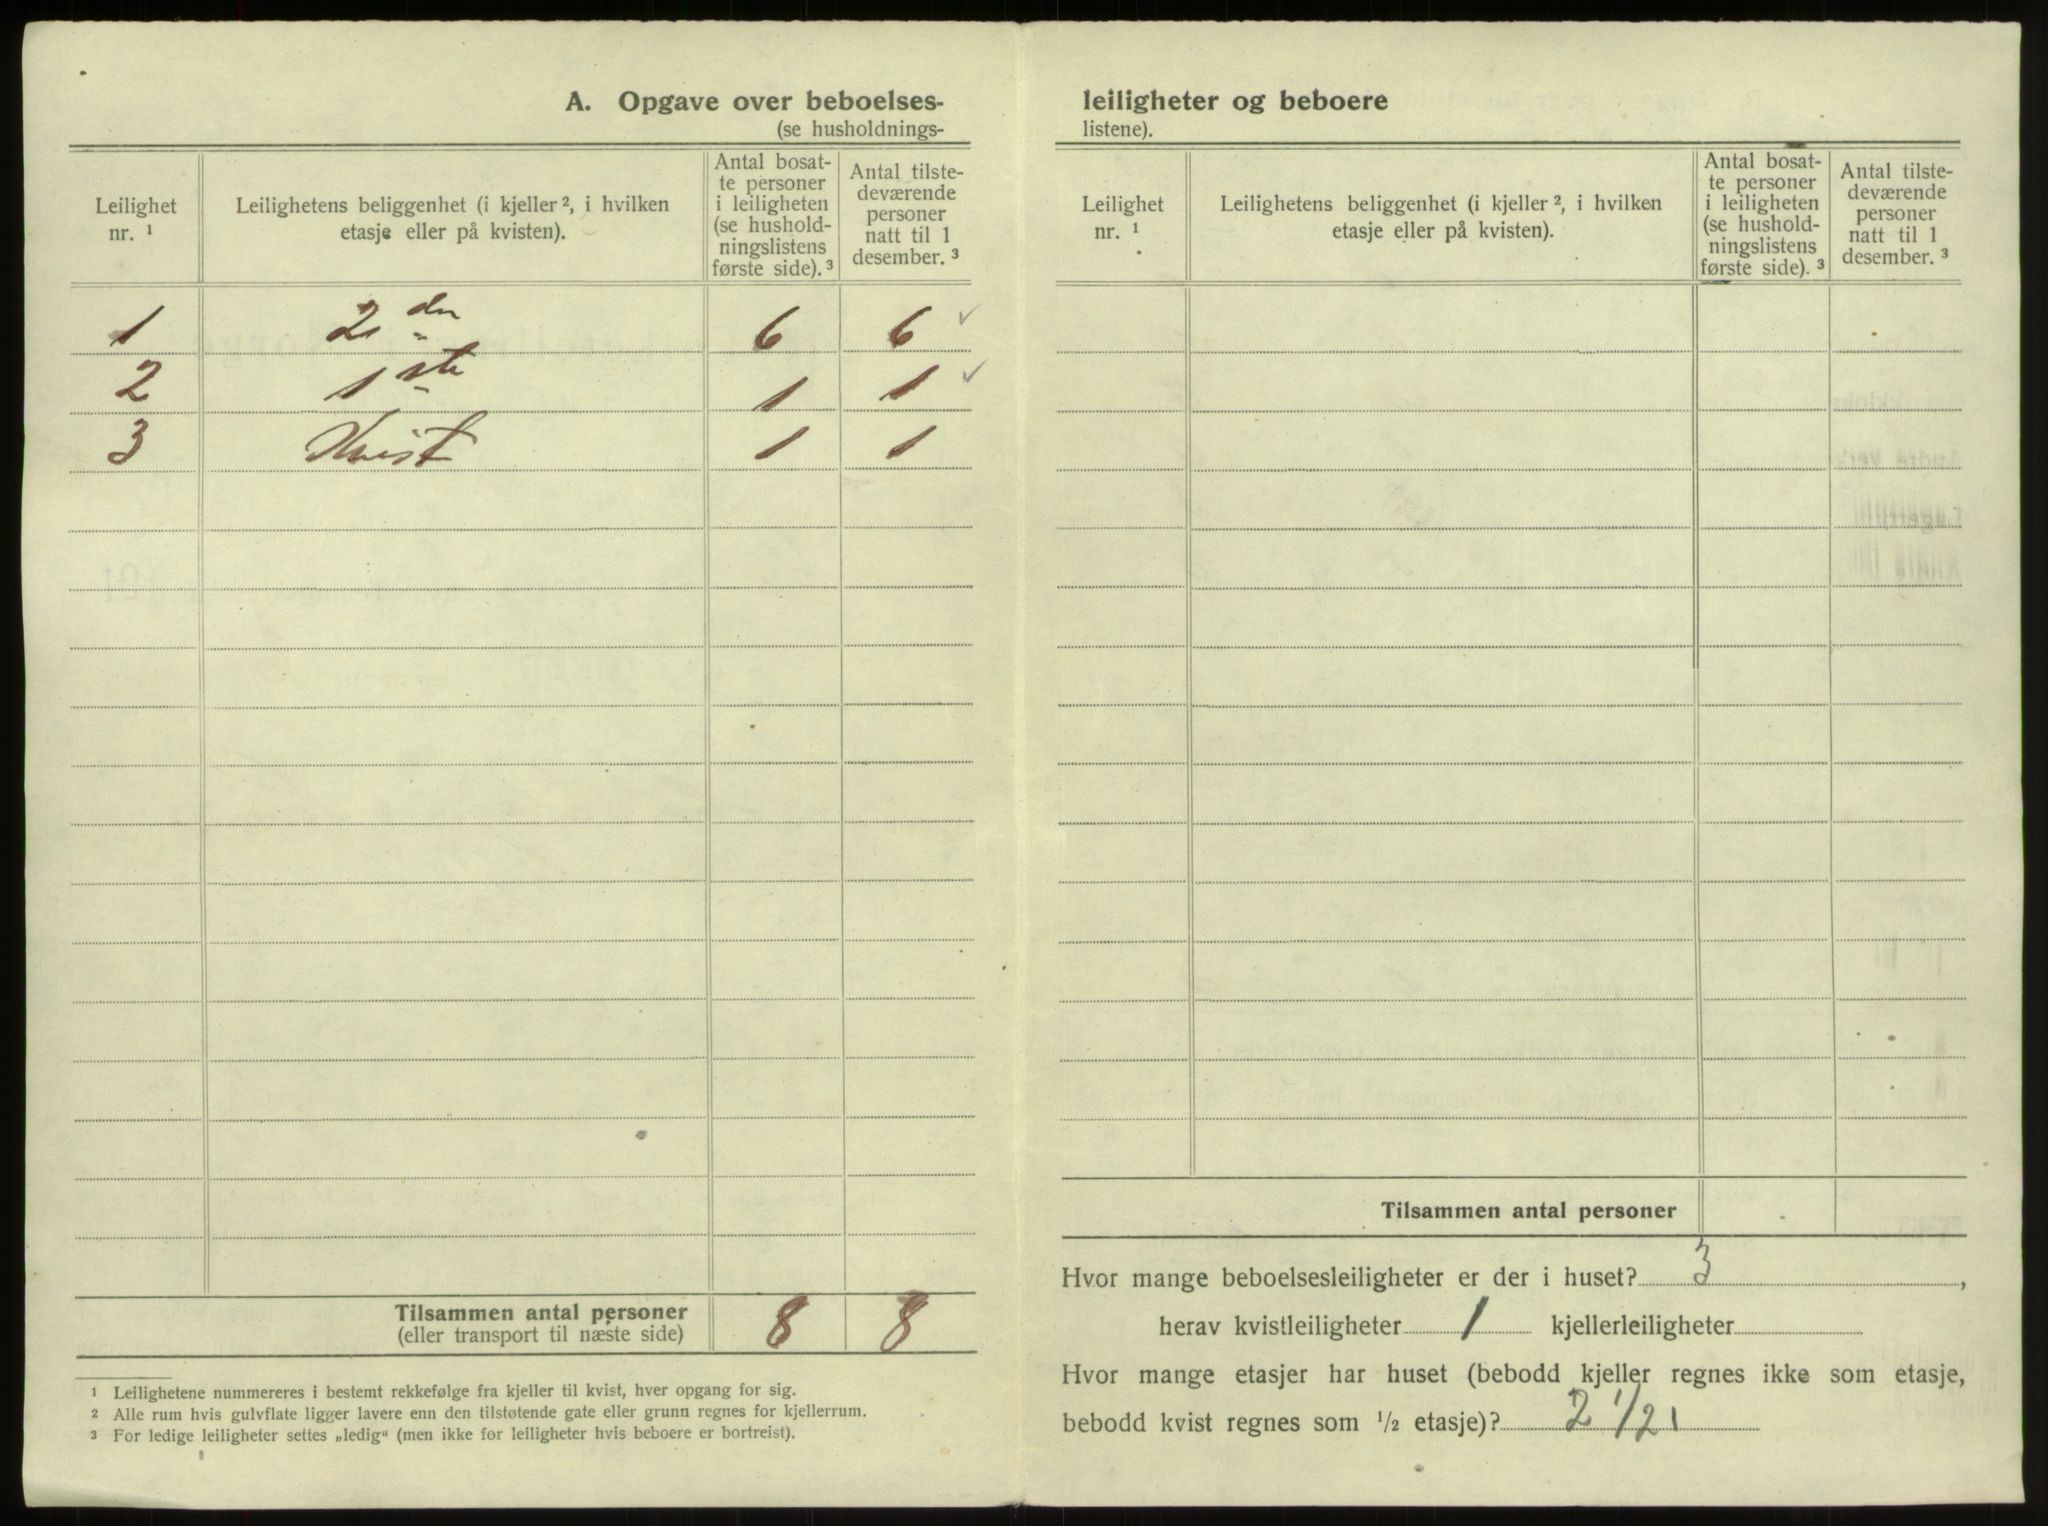 A. Opgave over beboelses-
(se husholdnings-
Leilighet
nr. ¹
Leilighetens beliggenhet (i kjeller ², i hvilken
etasje eller på kvisten).
Antal bosat-
te personer
i leiligheten
(se hushold-
ningslistens
første side). ³
Antal tilste-
deværende
personer
natt til 1
desember. ³
1 2den 6 6 ✓
2 1ste 1 1 ✓
3 Kvist 1 1
Tilsammen antal personer 8 8
(eller transport til næste side)
¹ Leilighetene nummereres i bestemt rekkefølge fra kjeller til kvist, hver opgang for sig.
² Alle rum hvis gulvflate ligger lavere enn den tilstøtende gate eller grunn regnes for kjellerrum.
³ For ledige leiligheter settes „ledig“ (men ikke for leiligheter hvis beboere er bortreist).
leiligheter og beboere
listene).
Leilighet
nr. ¹
Leilighetens beliggenhet (i kjeller ², i hvilken
etasje eller på kvisten).
Antal bosat-
te personer
i leiligheten
(se hushold-
ningslistens
første side). ³
Antal tilste-
deværende
personer
natt til 1
desember. ³
Tilsammen antal personer
Hvor mange beboelsesleiligheter er der i huset? 3,
herav kvistleiligheter 1 kjellerleiligheter
Hvor mange etasjer har huset (bebodd kjeller regnes ikke som etasje,
bebodd kvist regnes som ¹/₂ etasje)? 2 1/2